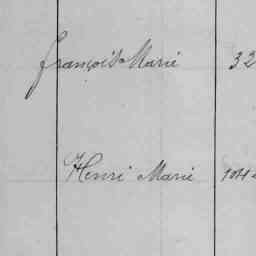 François Marie 32
Henri Marie 104